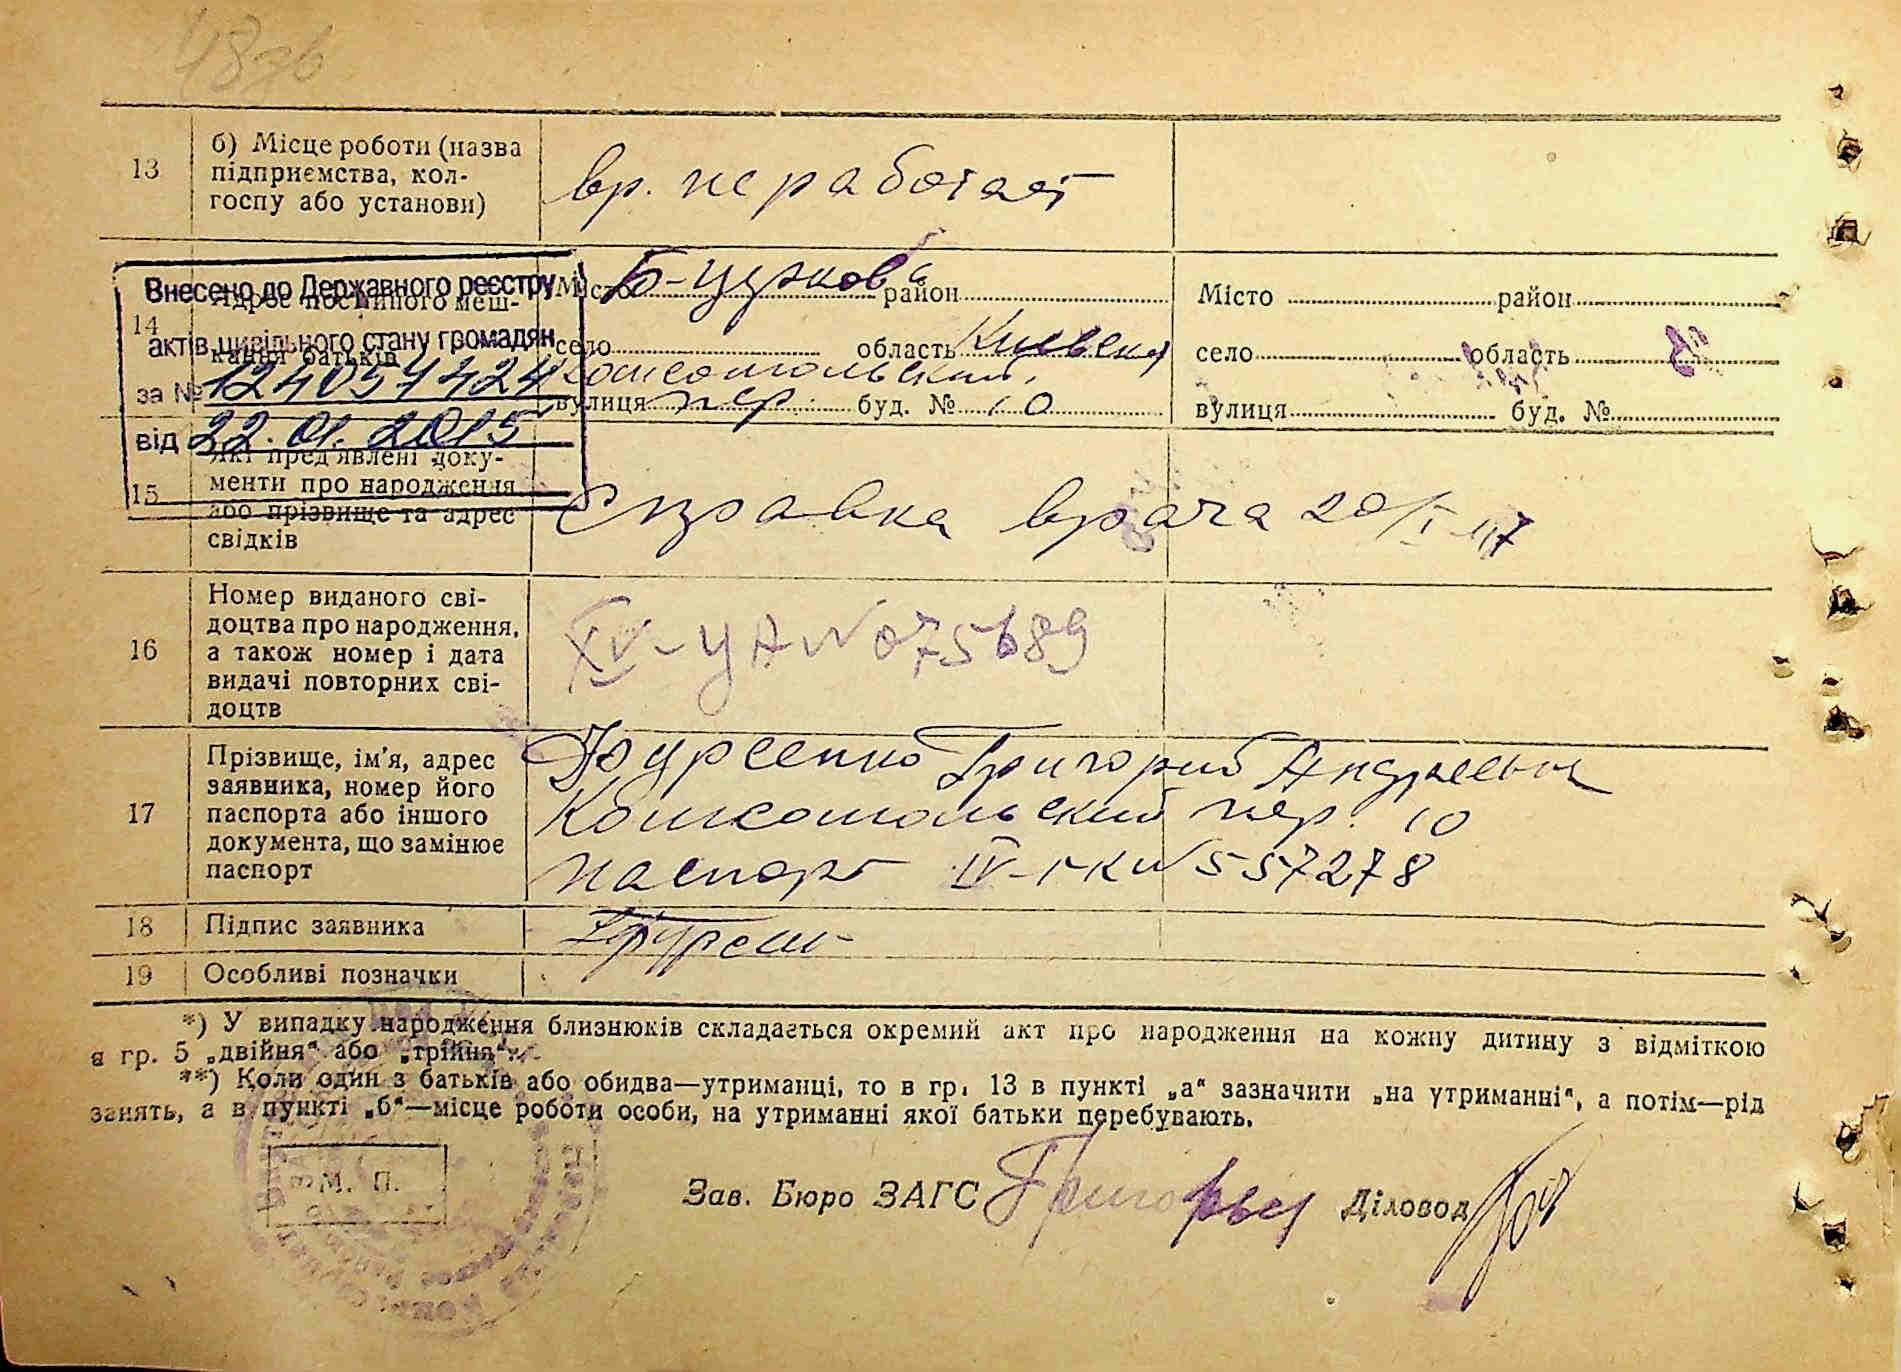 48 зв
13 б) Місце роботи (назва
підприємства, кол-
госпу або установи)
вр. не работает
Внесено до Державного реєстру
актів цивільного стану громадян
за № 124057424
від 22.01.2015
14 Адрес постійного меш-
кання батьків
Місто Б-Церковь район
село область Киевская
Комсомольский
вулиця пер. буд. № 10
Місто район
село область
вулиця буд. №
15 Які пред'явлені доку-
менти про народження
або прізвище та адрес
свідків
Справка врача 20/I-47
16 Номер виданого сві-
доцтва про народження,
а також номер і дата
видачі повторних сві-
доцтв
XV-УА № 075689
17 Прізвище, ім'я, адрес
заявника, номер його
паспорта або іншого
документа, що замінює
паспорт
Григорий Андреевич
Комсомольский пер. 10
паспорт IV- № 557278
18 Підпис заявника
19 Особливі позначки
*) У випадку народження близнюків складається окремий акт про народження на кожну дитину з відміткою
в гр. 5 „двійня“ або „трійня“.
**) Коли один з батьків або обидва—утриманці, то в гр. 13 в пункті „а“ зазначити „на утриманні“, а потім—рід
занять, а в пункті „б“—місце роботи особи, на утриманні якої батьки перебувають.
М. П.
Зав. Бюро ЗАГС Діловод